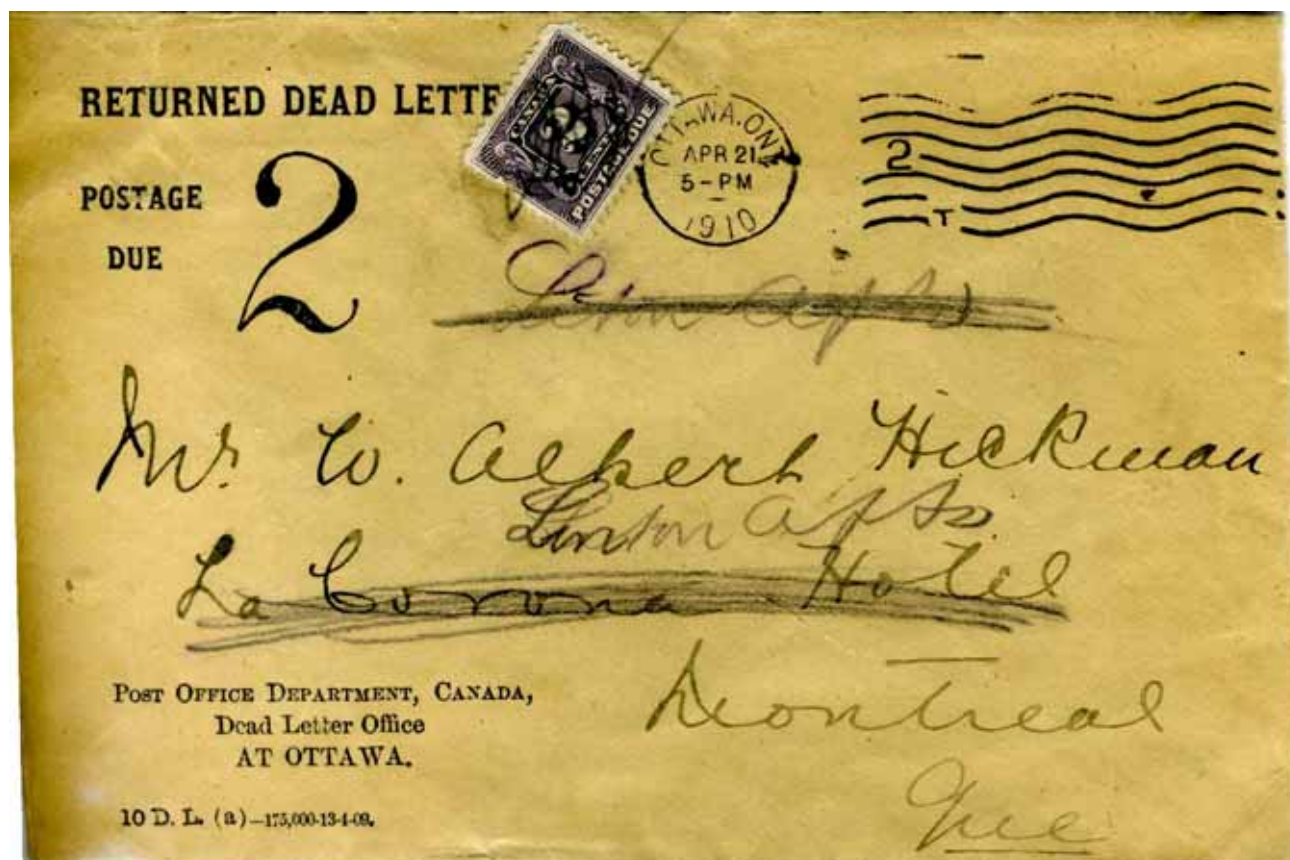 RETURNED DEAD LETTE
CANADA
2
CENTS
POSTAGE DUE
OTTAWA. ONT
APR 21
5-PM
1910
2
T
POSTAGE
DUE
2
Linton Apts
Mr. W. Albert Hickman
Linton Apts
La Corona Hotel
Montreal
Que
POST OFFICE DEPARTMENT, CANADA,
Dead Letter Office
AT OTTAWA.
10 D. L. (a)–175,000-13-4-09.